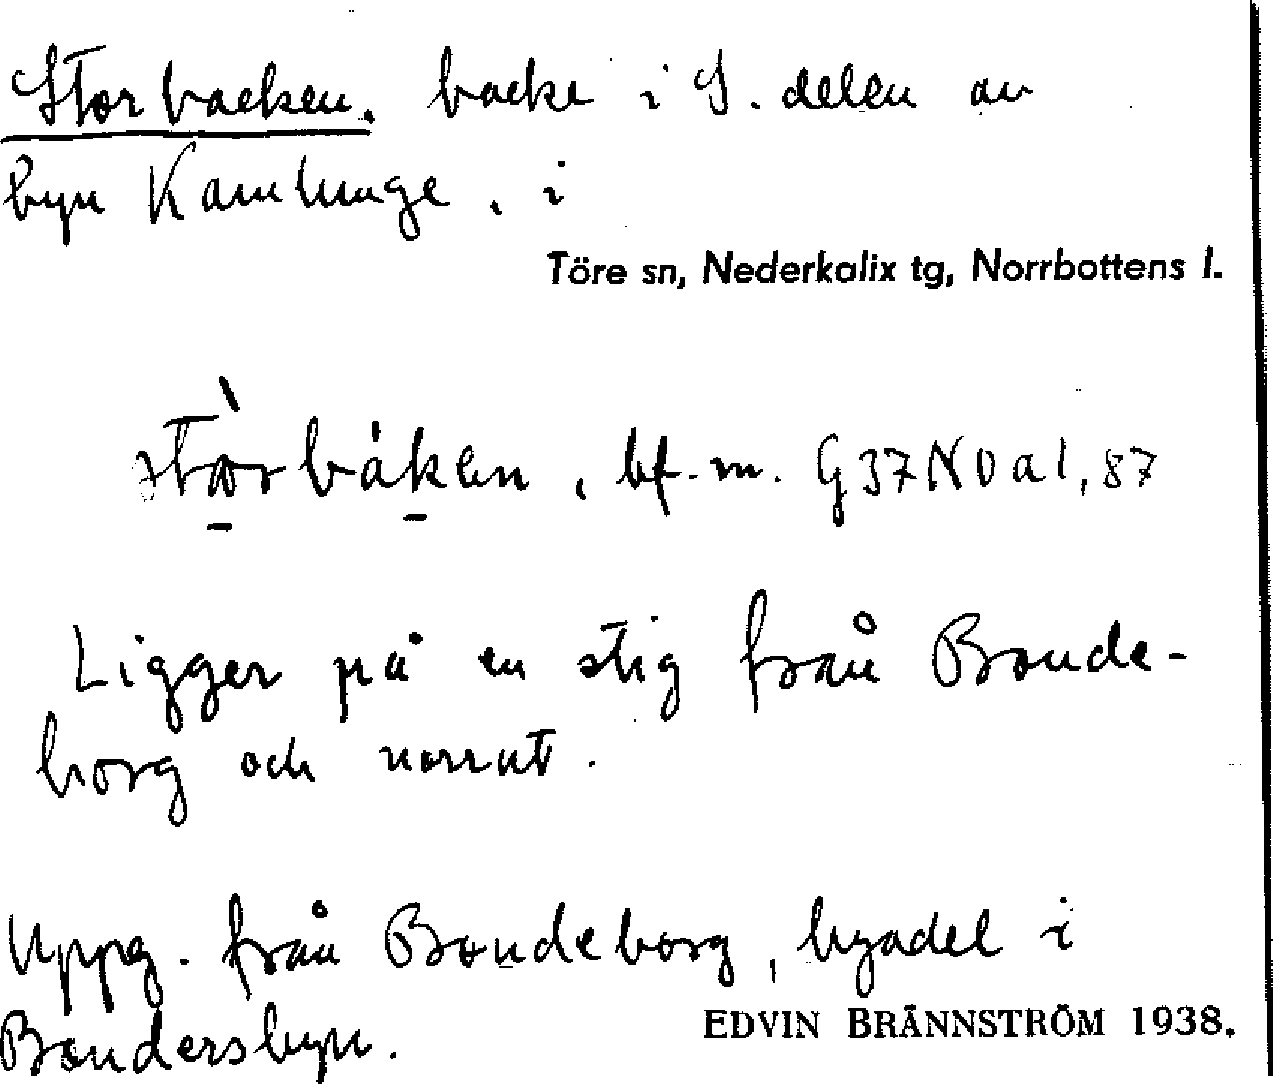 Storbacken, backe i S. delen av
byn Kamlunge, i
Töre sn, Nederkalix tg, Norrbottens l.
stòrbáken, bf. m. G37NVa1,87
Ligger på en stig från Bonde-
borg och norrut.
Uppg. från Bondeborg, byadel i
Bondersbyn.
EDVIN BRÄNNSTRÖM 1938.